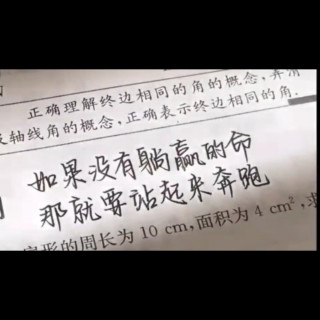 正确理解终边相同的角的概念,弄清
轴线角的概念,正确表示终边相同的角.
如果没有躺赢的命
那就要站起来奔跑
形的周长为 10 cm,面积为 4 cm²,求